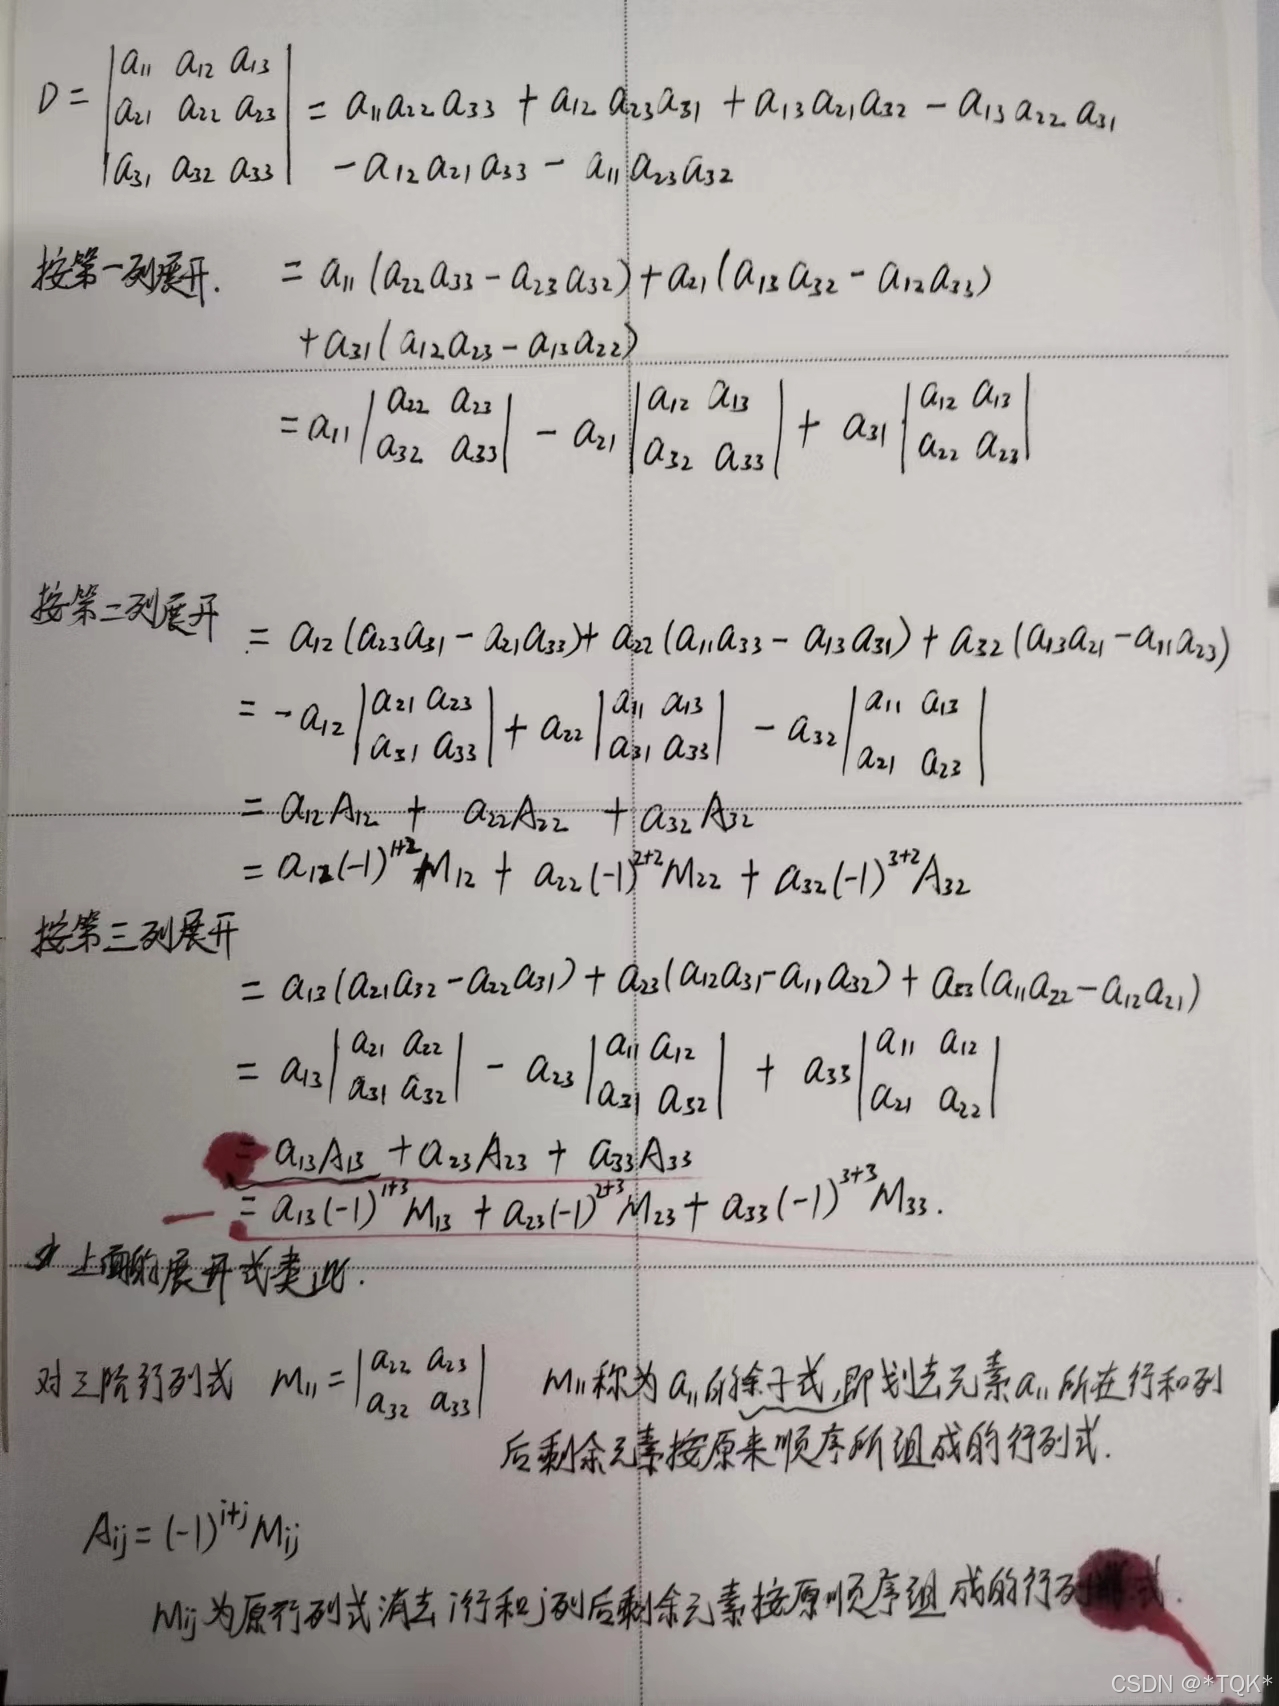 D = | a₁₁ a₁₂ a₁₃ |
| a₂₁ a₂₂ a₂₃ | = a₁₁a₂₂a₃₃ + a₁₂a₂₃a₃₁ + a₁₃a₂₁a₃₂ - a₁₃a₂₂a₃₁
| a₃₁ a₃₂ a₃₃ | - a₁₂a₂₁a₃₃ - a₁₁a₂₃a₃₂
按第一列展开. = a₁₁(a₂₂a₃₃ - a₂₃a₃₂) + a₂₁(a₁₃a₃₂ - a₁₂a₃₃)
+ a₃₁(a₁₂a₂₃ - a₁₃a₂₂)
= a₁₁ | a₂₂ a₂₃ ; a₃₂ a₃₃ | - a₂₁ | a₁₂ a₁₃ ; a₃₂ a₃₃ | + a₃₁ | a₁₂ a₁₃ ; a₂₂ a₂₃ |
按第二列展开 = a₁₂(a₂₃a₃₁ - a₂₁a₃₃) + a₂₂(a₁₁a₃₃ - a₁₃a₃₁) + a₃₂(a₁₃a₂₁ - a₁₁a₂₃)
= -a₁₂ | a₂₁ a₂₃ ; a₃₁ a₃₃ | + a₂₂ | a₁₁ a₁₃ ; a₃₁ a₃₃ | - a₃₂ | a₁₁ a₁₃ ; a₂₁ a₂₃ |
= a₁₂A₁₂ + a₂₂A₂₂ + a₃₂A₃₂
= a₁₂(-1)¹⁺²M₁₂ + a₂₂(-1)²⁺²M₂₂ + a₃₂(-1)³⁺²A₃₂
按第三列展开
= a₁₃(a₂₁a₃₂ - a₂₂a₃₁) + a₂₃(a₁₂a₃₁ - a₁₁a₃₂) + a₃₃(a₁₁a₂₂ - a₁₂a₂₁)
= a₁₃ | a₂₁ a₂₂ ; a₃₁ a₃₂ | - a₂₃ | a₁₁ a₁₂ ; a₃₁ a₃₂ | + a₃₃ | a₁₁ a₁₂ ; a₂₁ a₂₂ |
= a₁₃A₁₃ + a₂₃A₂₃ + a₃₃A₃₃
= a₁₃(-1)¹⁺³M₁₃ + a₂₃(-1)²⁺³M₂₃ + a₃₃(-1)³⁺³M₃₃.
上面的展开式类此.
对三阶行列式 M₁₁ = | a₂₂ a₂₃ ; a₃₂ a₃₃ | M₁₁称为a₁₁的余子式,即划去元素a₁₁所在行和列
后剩余元素按原来顺序所组成的行列式.
Aij = (-1)^(i+j) Mij
Mij为原行列式消去i行和j列后剩余元素按原顺序组成的行列式.
CSDN @*TQK*